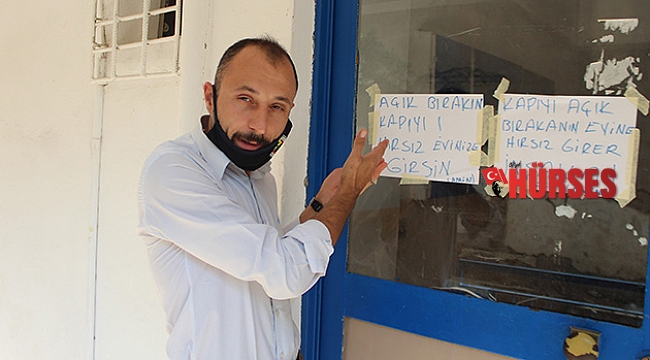 AÇIK BIRAKIN
KAPIYI !
HIRSIZ EVİNİZE
GİRSİN
(AMİN)
KAPIYI AÇIK
BIRAKANIN EVİNE
HIRSIZ GİRER
HÜRSES